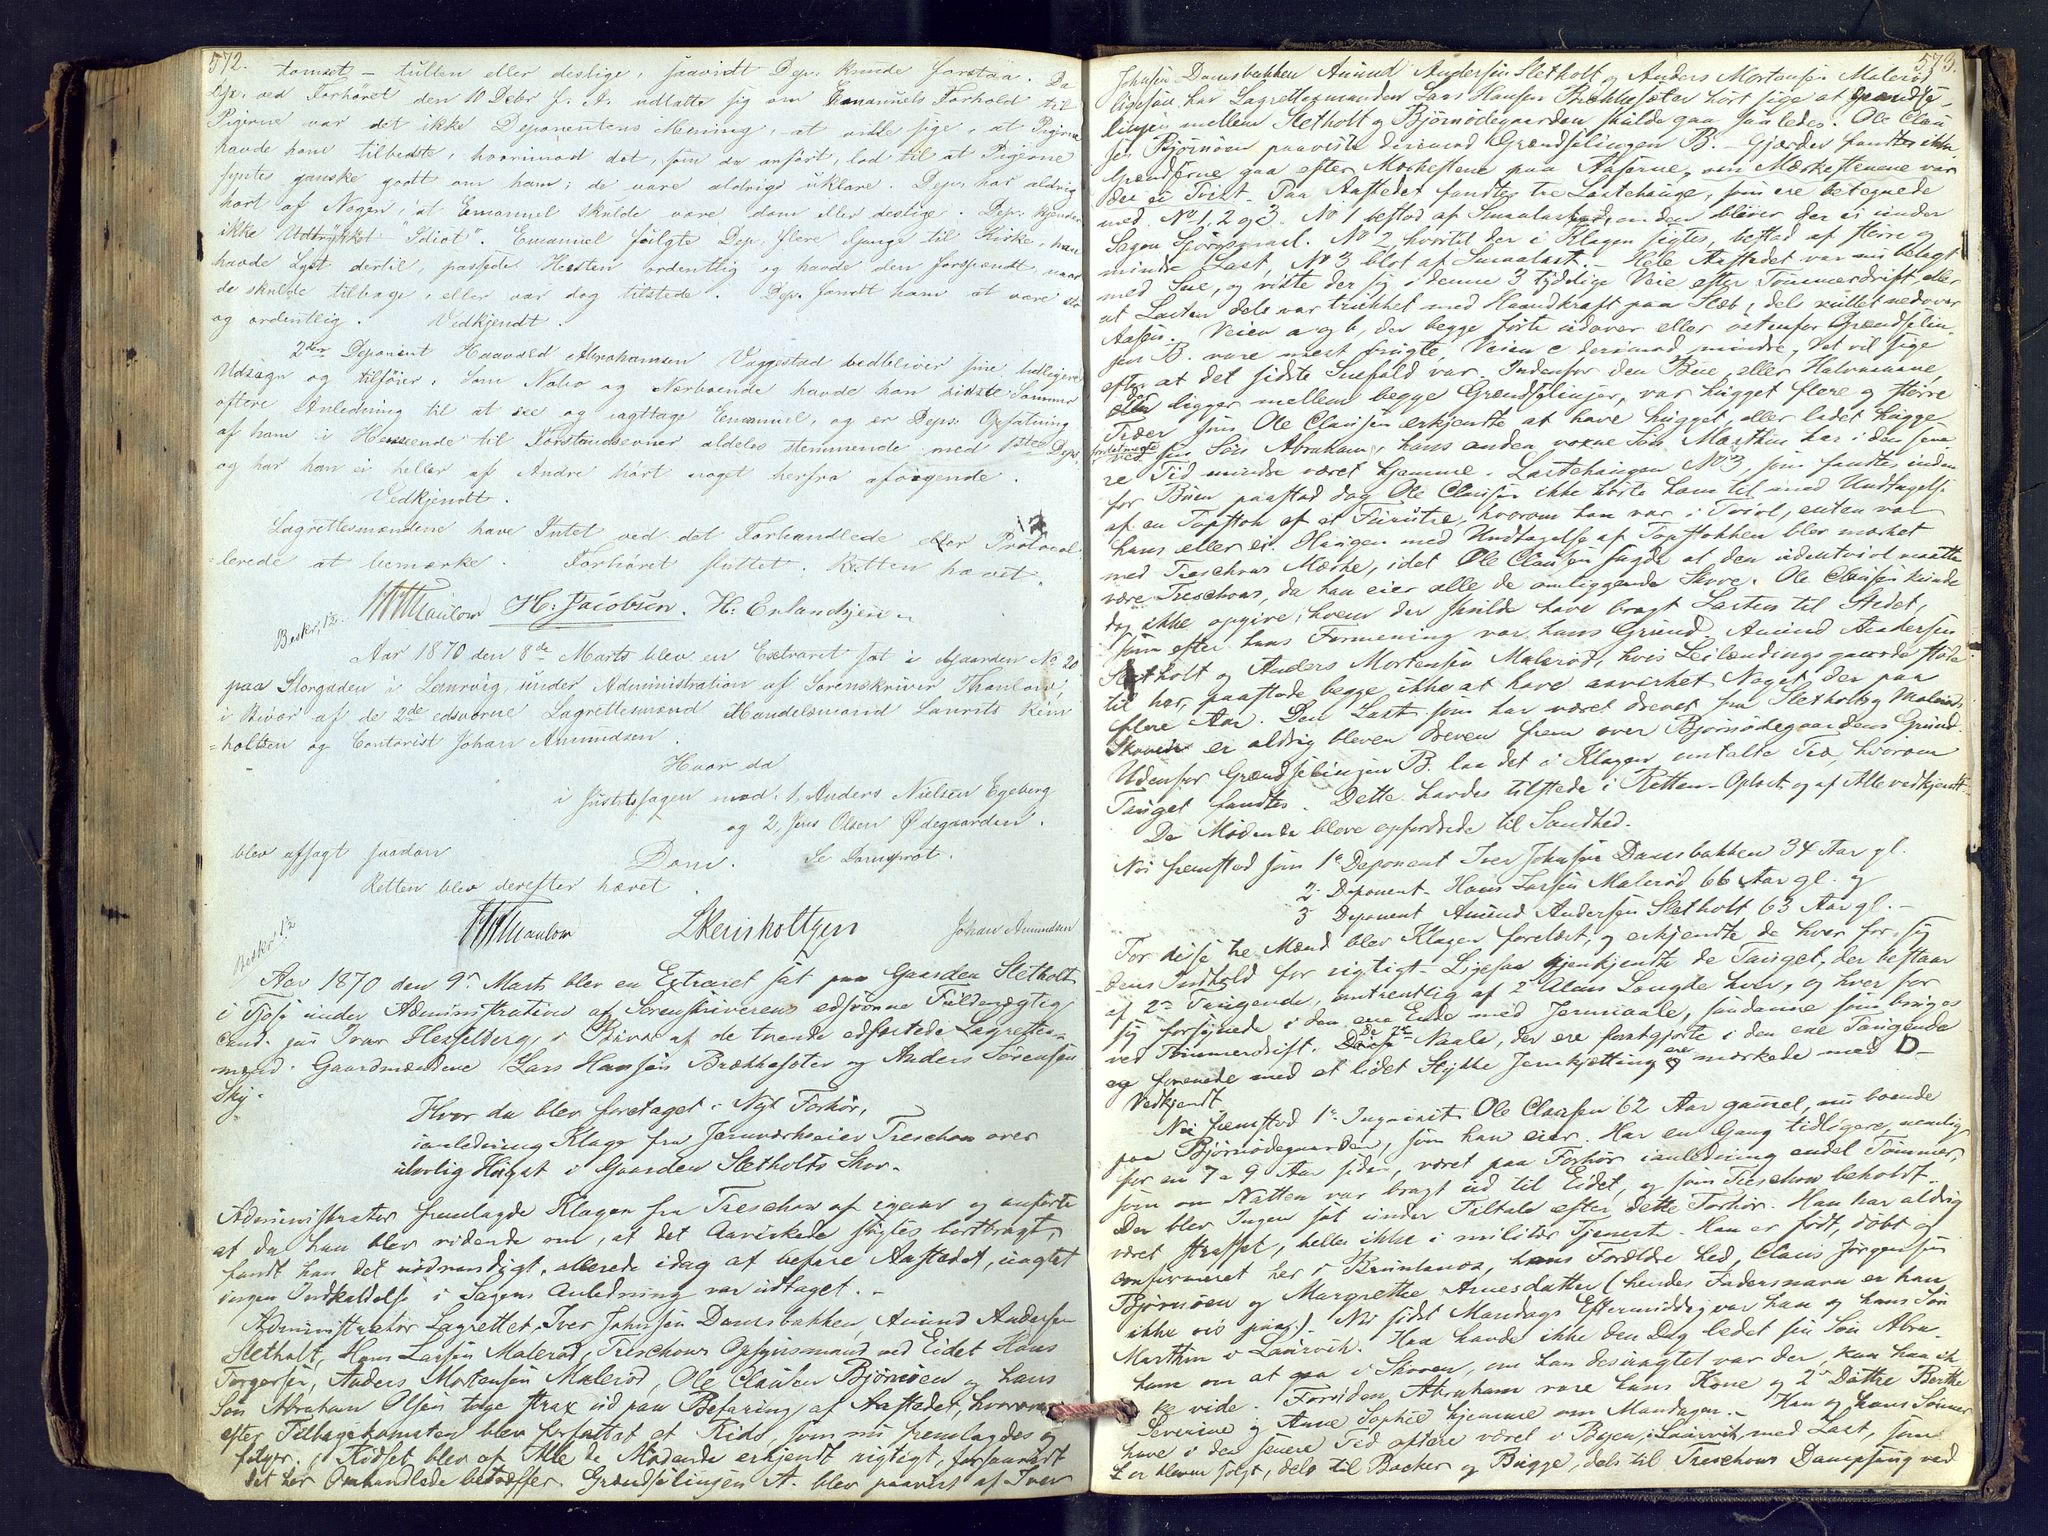 572.
tomset, – tullen eller deslige, saavidt Dep. kunde forstaa. Da
Dp. ved Forhöret den 10 Debr f. A. udtalte sig om Emanuels Forhold til
Pigerne var det ikke Deponentens Mening, at ville sige, at Pigerne
havde ham tilbedste, hvorimod det, som da anfört, lod til at Pigerne
syntes ganske godt om ham; de vare aldrig uklare. Dep. har aldrig
hört af Nogen, at Emanuel skulde være dom eller deslige. Dep. kjender
ikke Udtrykket "Idiot". Emanuel fulgte Dep. flere Gange til Kirke, han
havde Lyst dertil, passede Hesten ordentlig og havde den forspændt, naar
de skulde tilbage, eller var dog tilstede. Dep. fandt ham at være
og ordentlig. Vedkjendt.
2den Deponent Haavald Abrahamsen Vaggestad vedbliver sine tidligere
Udsagn og tilföier: Som Nabo og Nærboende havde han sidste Sommer
oftere Anledning til at see og iagttage Emanuel, og er Deps. Opfatning
af ham i Henseende til Forstandsevner aldeles stemmende med 1ste Dep.
og har han ei heller af Andre hört noget herfra afvigende.
Vedkjendt.
Lagrettesmændene have Intet ved det Forhandlede eller Protocol-
lerede at bemærke. Forhöret sluttet. Retten hævet.
Thaulow H. Jacobsen. H. Erlandsen.
Beskr. 12.
Aar 1870 den 8de Marts blev en Extraret sat i Gaarden No 20
paa Storgaden i Laurvig, under Administration af Sorenskriver Thaulow,
i Bivær af de 2de edsvorne Lagrettesmænd Handelsmand Laurits Rein-
holtsen og Contorist Johan Amundsen.
Hvor da
i Justitssagen mod: 1, Anders Nielsen Egeberg
og 2, Jens Olsen Ødegaarden.
blev afsagt saadan
Dom. Se Domsprot.
Retten blev derefter hævet.
Thaulow LReinholtzen Johan Amundsen
Beskr. 12
Aar 1870 den 9de Marts blev en Extraret sat paa Gaarden Sletholt
i Tjose under Administration af Sorenskriverens edsvorne Fuldmægtig
Cand. jur. Ivar Hesselberg, i Bivær af de tvende edfæstede Lagrettes-
mænd Gaardmændene Lars Hansen Brækkesæter og Anders Sörensen
Sky.
Hvor da blev foretaget Nyt Forhör,
i anledning Klage fra Jernværkseier Treschow over
ulovlig Hugst i Gaarden Sletholts Skov.
Administrator fremlagde Klagen fra Treschow af igaar og anförte
at da han blev vidende om, at det Aarvirkede sögtes bortbragt,
fandt han det nödvendigt, allerede idag at befare Aastedet, uagtet
ingen Indkaldelse i Sagens Anledning var udtaget. –
Administrator, Lagrettet, Iver Johnsen Damsbakken, Amund Andersen
Sletholt, Hans Larsen Maleröd, Treschows Opsynsmand ved Eidet Hans
Torgersen, Anders Mortensen Maleröd, Ole Clausen Björnöen og hans
Sön Abraham Olsen toge strax ud paa Befaring af Aastedet, hvorom
efter Tilbagekomsten blev forfattet et Rids, som nu fremlagdes og
fölger. Ridset blev af Alle de Mödende erkjendt rigtigt, forsaavidt
det her Omhandlede betræffer. Grændselinjen A. blev paavist af Iver
573.
Johnsen Damsbakken Amund Andersen Sletholt og Anders Mortensen Maleröd
ligesom har Lagrettesmanden Lars Hansen Brækkesæter hört sige at Grændse-
linjen mellem Sletholt og Björnödegaarden skulde gaa saaledes. Ole Clau-
sen Björnöen paaviste derimod Grændselinjen B. – Gjærder fandtes ikke.
Grændserne gaa efter Mærkestene paa Aaserne, om Mærkestenene var
der ei Tvist. Paa Aastedet fandtes tre Lastehauge, som ere betegnede
med No 1, 2 og 3. No 1 bestod af Smaalast, om den bliver der ei under
Sagen Spörgsmaal. No 2, hvortil der i Klagen sigtes, bestod af större og
mindre Last, No 3 blot af Smaalast. – Hele Aastedet var nu belagt
med Sne, og viste der sig i denne 3 tydelige Veie efter Tömmerdrift, eller
at Lasten dels var trukket med Haandkraft paa Slæb, dels rullet nedover
Aasen. Veien a og b, der begge förte udover eller östenfor Grændselin-
jen B. vare mest brugte, Veien c derimod mindre, det vil sige
efter at det sidste Snefald var. Indenfor den Böie eller Halvmaane,
der ligger mellem begge Grændselinjer, var hugget flere og större
Træer som Ole Clausen erkjendte at have hugget eller ladet hugge
ved sin Sön Abraham; hans anden voxne Sön Marthin har i den sene-
re Tid mindre været hjemme. Lastehaugen No 3, som fandtes inden-
for Böien paastod dog Ole Clausen ikke hörte ham til med Undtagelse
af en Topstok af et Furutræ, hvorom han var i Tvivl, enten var
hans eller ei. Haugen med Undtagelse af Topstokken blev mærket
med Treschows Mærke, idet Ole Clausen sagde at den udentvivl maatte
være Treschows, da han eier alle de omliggende Skove. Ole Clausen kunde
dog ikke opgive, hvem der skulde have bragt Lasten til Stedet,
som efter hans Formening var hans Grund. Amund Andersen
Sletholt og Anders Mortensen Maleröd, hvis Leilændingsgaarde stöde
til her, paastode begge ikke at have aavirket Noget der paa
flere Aar. Den Last som har været drevet fra Sletholts og Maleröds
Skovene er aldrig bleven dreven frem over Björnödegaardens Grund.
Udenfor Grændselinjen B. laa det i Klagen omtalte Træ, hvorom
Tauget fandtes. Dette havdes tilstede i Retten. – Oplæst og af Alle vedkjendt. –
De Mödende bleve opfordrede til Sandhed.
Nu fremstod som 1e Deponent Iver Johnsen Damsbakken 34 Aar gl.
2 Deponent Hans Larsen Maleröd 66 Aar gl. og
3 Deponent Amund Andersen Sletholt 63 Aar gl. –
For disse tre Mænd blev Klagen forelæst, og erkjendte de hver for sig
dens Indhold for rigtigt. Ligesaa gjenkjendte de Tauget, der bestaar
af 2de Tougende, omtrentlig af 2 Alens Længde hver, og hver for
sig forsynede i den ene Ende med Jernnaale, saadanne som bruges
ved Tömmerdrift. De 2de Naale, der ere fastgjorte i den ene Tougende
og forenede med et lidet Stykke Jernkjetting, ere mærkede med D –
Vedkjendt.
Nu fremstod 1e Inquisit Ole Clausen 62 Aar gammel, nu boende
paa Björnödegaarden, som han eier. Har en Gang tidligere, nemlig
for en 7 a 9 Aar siden, været paa Forhör i anledning endel Tömmer,
som om Natten var bragt ud til Eidet, og som Treschow beholdt.
Der blev Ingen sat under Tiltale efter dette Forhör. Han har aldrig
været straffet, heller ikke i militær Tjeneste. Han er födt, döbt og
confirmeret her i Brunlanæs, hans Forældre hed, Claus Jörgensen
Björnöen og Margrethe Arnesdatter (hendes Fadersnavn er han
ikke vis paa.) Nu sidst Mandags Eftermiddag var han og hans Sön
Marthin i Laurvik. Han havde ikke den Dag bedet sin Sön Abra-
ham om at gaa i Skoven, om han desuagtet var der, kan han ik-
ke vide. Foruden Abraham vare hans Kone og 2de Döttre Berthe
Severine og Anne Sophie hjemme om Mandagen. – Han og hans Sönner
have i den senere Tid oftere været i Byen, Laurvik, med Last, som
er bleven solgt, dels til Bacher og Bugge, dels til Treschows Dampsaug ved